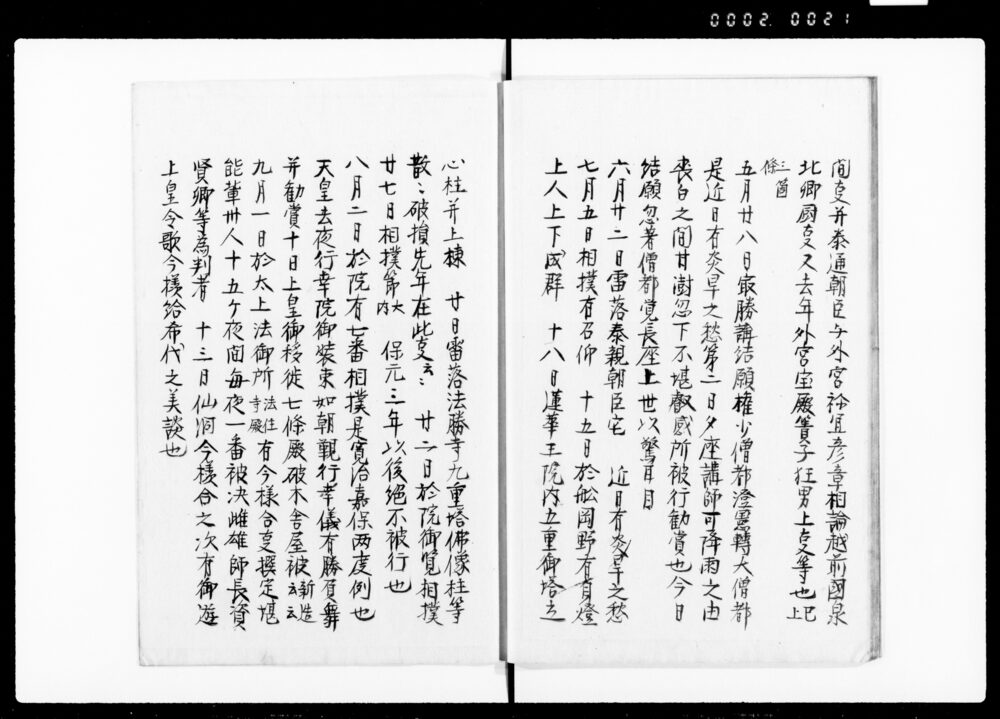 0002 0021
間事并泰通朝臣与外宮祢宜彦章相論越前國泉
北郷厨事又去年外宮宝殿簀子狂男上事等也已上
三箇條
五月廿八日最勝講結願權少僧都澄憲轉大僧都
是近日有炎旱之愁第二日夕座講師可降雨之由
表白之間甘澍忽下不堪叡感所被行勧賞也今日
結願忽著僧都覚長座上世以驚耳目
六月廿二日雷落泰親朝臣宅　近日有炎旱之愁
七月五日相撲有召仰　十五日於舩岡野有身燈
上人上下成群　十八日蓮華王院内五重御塔立
心柱并上棟　廿日雷落法勝寺九重塔佛像柱等
散々破損先年在此事云々　廿二日於院御覧相撲
廿七日相撲節大内　保元三年以後絶不被行也
八月二日於院有七番相撲是寛治嘉保两度例也
天皇去夜行幸院御装束如朝覲行幸儀有勝負舞
并勧賞十日上皇御移徙七條殿破木舎屋被新造云云
九月一日於太上法御所法住寺殿有今様合事撰定堪
能輩卅人十五ケ夜間毎夜一番被決雌雄師長資
賢卿等為判者　十三日仙洞今様合之次有御遊
上皇令歌今様給希代之美談也